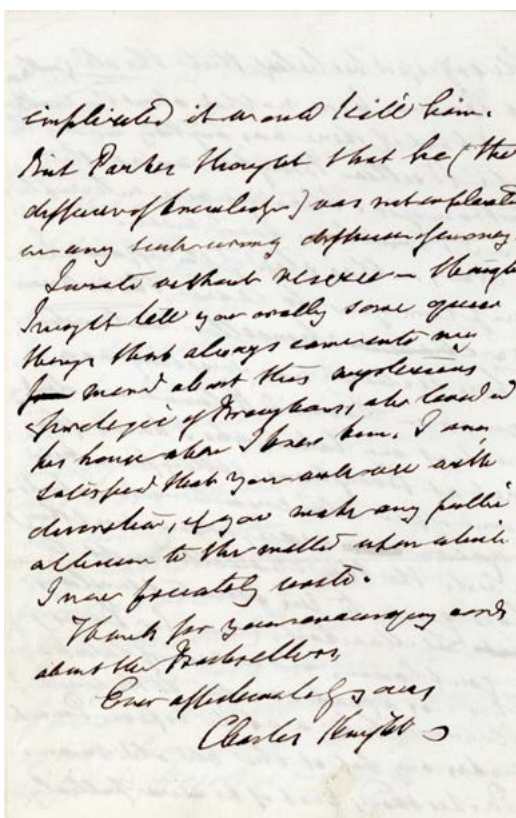 implicated it would kill him.
But Parker thought that he (the
diffuser of knowledge) was not implicated
in any such wrong diffusion of money.
I write without reserve — though
I might tell you orally some queer
things that always came into my
mind about this mysterious
protégé of Brougham, who lived in
his house when I knew him. I am
satisfied that you will use with
discretion, if you make any public
allusion to the matter upon which
I now privately write.
Thanks for your encouraging words
about the Booksellers
Ever affectionately yours
Charles Knight